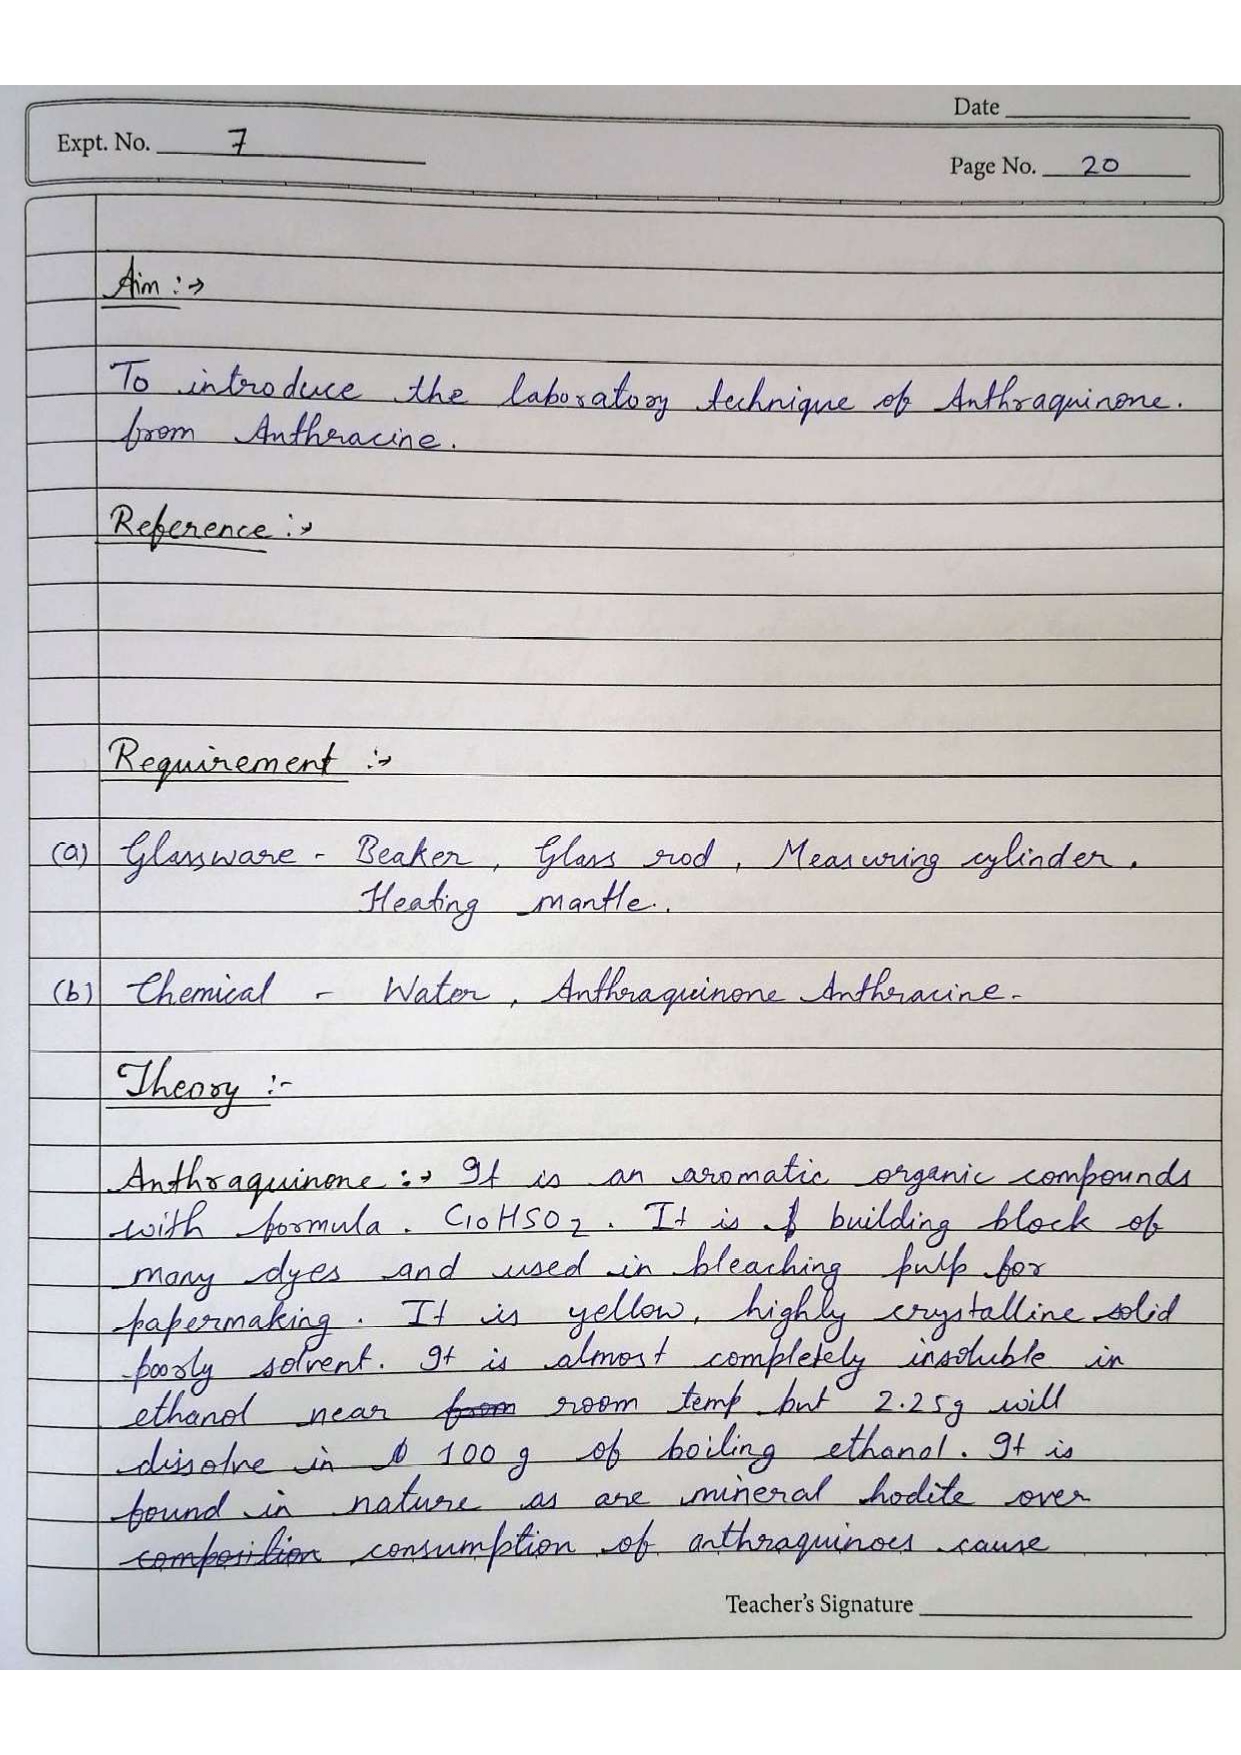 Date
Expt. No. 7
Page No. 20
Aim :→
To introduce the laboratory technique of Anthraquinone.
from Anthracine.
Reference :→
Requirement :→
(a) Glassware - Beaker, Glass rod, Measuring cylinder.
Heating mantle.
(b) Chemical - Water, Anthraquinone Anthracine.
Theory :-
Anthraquinone :→ It is an aromatic organic compounds
with formula. C10HSO2. It is building block of
many dyes and used in bleaching pulp for
papermaking. It is yellow, highly crystalline solid
poorly solvent. It is almost completely insoluble in
ethanol near from room temp but 2.25g will
dissolve in 100 g of boiling ethanol. It is
found in nature as are mineral hodite over
composition consumption of anthraquinoes cause
Teacher's Signature